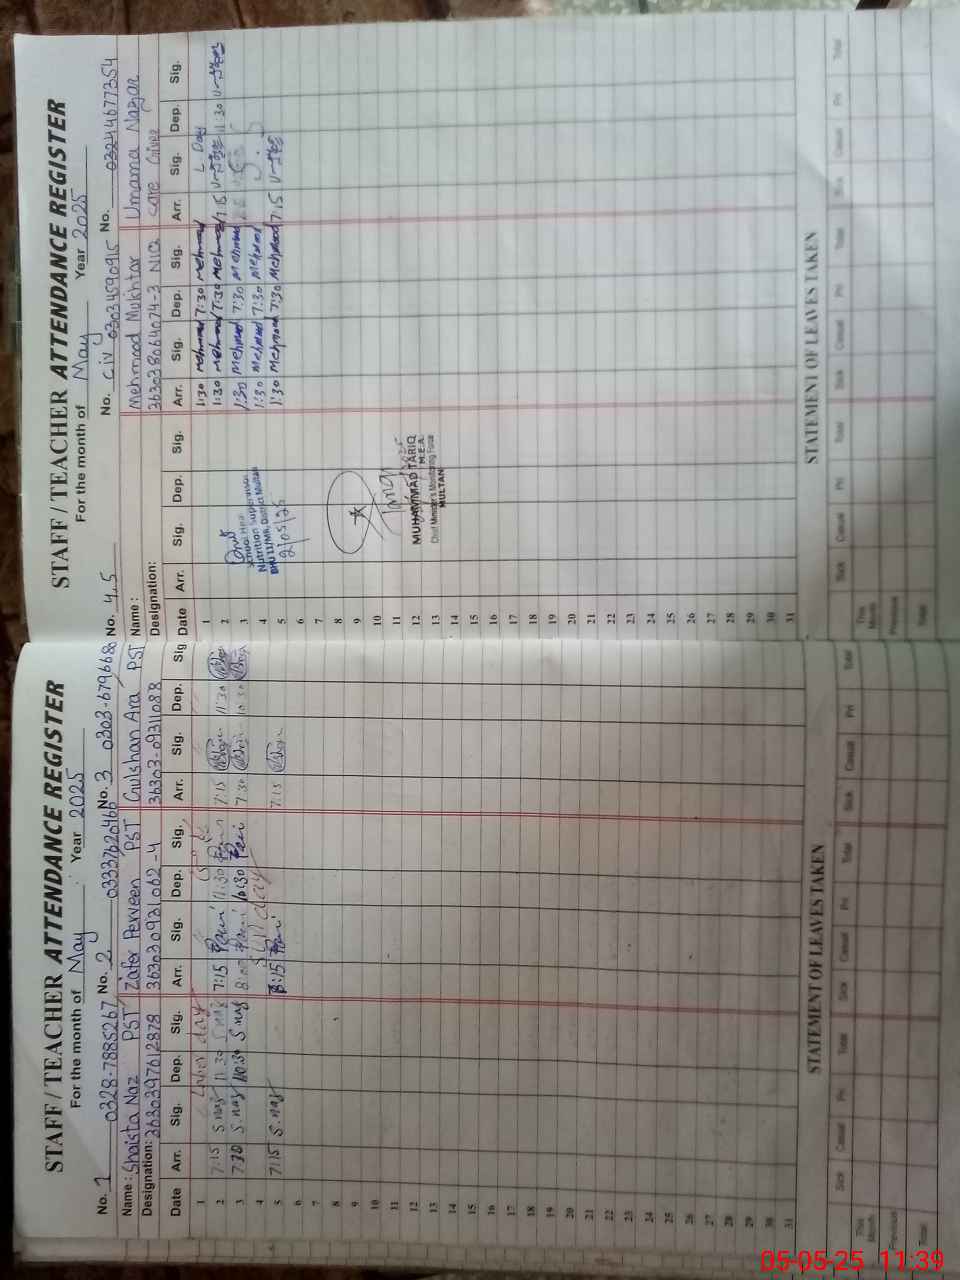 STAFF / TEACHER ATTENDANCE REGISTER
For the month of May Year 2025
No. 1 0328-7885267 No. 2 03337620466 No. 3 0303-6796688
Name: Shaista Naz PST Zafer Perveen PST Gulshan Ara PST
Designation: 3630397612878 363030931062-4 36303-0931108 8
Date Arr. Sig. Dep. Sig. Arr. Sig. Dep. Sig. Arr. Sig. Dep. Sig
1 Labor day
2 7:15 S.naz 11:30 S.naz 7:15 11:30 7:15 11:30
3 7:30 S.naz 10:30 S.naz 8:00 10:30 7:30 10:30
4 Sunday
5 7:15 S.naz 8:15 7:15
6
7
8
9
10
11
12
13
14
15
16
17
18
19
20
21
22
23
24
25
26
27
28
29
30
31
STATEMENT OF LEAVES TAKEN
Sick Casual Pri Total Sick Casual Pri Total Sick Casual Pri Total
This Month
Previous
Total
STAFF / TEACHER ATTENDANCE REGISTER
For the month of May Year 2025
No. 4,5 No. C iv 03034590915 No. 03244677354
Name: Mehmood Mukhtar Umama Nazar
Designation: 363038064074-3 N/Q care Giver
Date Arr. Sig. Dep. Sig. Arr. Sig. Dep. Sig. Arr. Sig. Dep. Sig.
1 1:30 Mehmood 7:30 Mehmood L Day
2 1:30 Mehmood 7:30 Mehmood 7:15 11:30
3 1:30 Mehmood 7:30 Mehmood
4 1:30 Mehmood 7:30 Mehmood
5 1:30 Mehmood 7:30 Mehmood 7:15
6
7
8
9
10
11
12
13
14
15
16
17
18
19
20
21
22
23
24
25
26
27
28
29
30
31
Nutrition Supervisor
District Multan
2/05/25
MUHAMMAD TARIQ
M.E.A.
Chief Minister's Monitoring Force
MULTAN
STATEMENT OF LEAVES TAKEN
Sick Casual Pri Total Sick Casual Pri Total Sick Casual Pri Total
This Month
Previous
Total
05-05-25 11:39